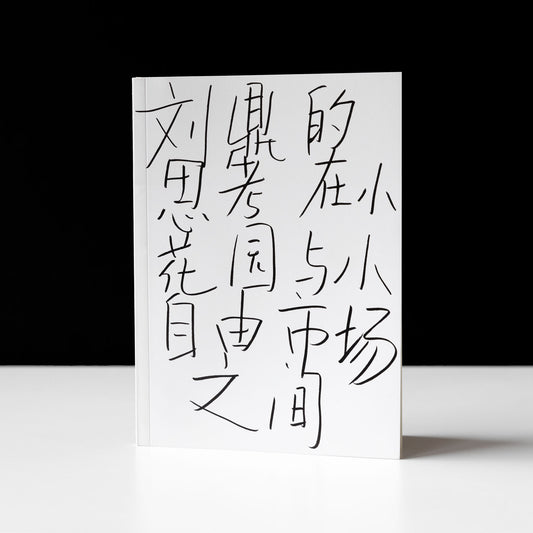 刘鼎的
思考在小
花园与小
自由市场
之间